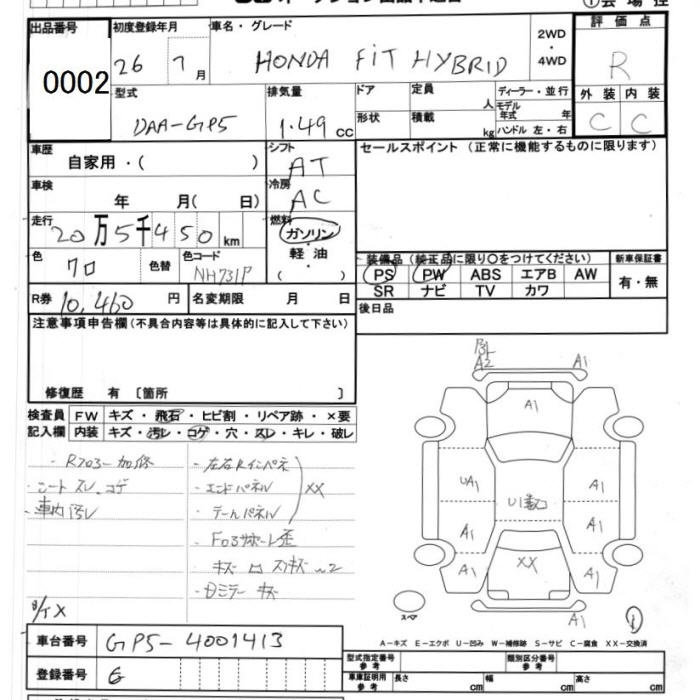 出品番号
0002
初度登録年月
26 7月
車名・グレード
HONDA FIT HYBRID
2WD
・
4WD
評価点
R
外装 内装
C C
型式
DAA-GP5
排気量
1.49 cc
ドア
形状
定員
人
積載
kg
ディーラー・並行
モデル年式 年
ハンドル 左・右
車歴
自家用・( )
シフト
AT
車検
年 月( 日)
冷房
AC
走行
20万5千450km
燃料
ガソリン
・
軽油
・
( )
色
クロ
色替
色コード
NH731P
R券 10,460円
名変期限 月 日
セールスポイント(正常に機能するものに限ります)
装備品(純正品に限り○をつけてください)
PS PW ABS エアB AW
SR ナビ TV カワ
新車保証書
有・無
後日品
注意事項申告欄(不具合内容等は具体的に記入して下さい)
修復歴 有 〔箇所 〕
検査員記入欄
FW キズ・飛石・ヒビ割・リペア跡・×要
内装 キズ・汚レ・コゲ・穴・スレ・キレ・破レ
シートスレ、コゲ
車内汚レ
左右Rインパネ
エンドパネル
テールパネル
XX
A2 A1
A1
UA1 A1
A1 A1
XX
A1 A1
A1
スペア
A-キズ E-エクボ U-凹み W-補修跡 S-サビ C-腐食 XX-交換済
車台番号 GP5-4001413
登録番号
型式指定番号
参考
類別区分番号
参考
車庫証明用
参考
長さ cm 幅 cm 高さ cm